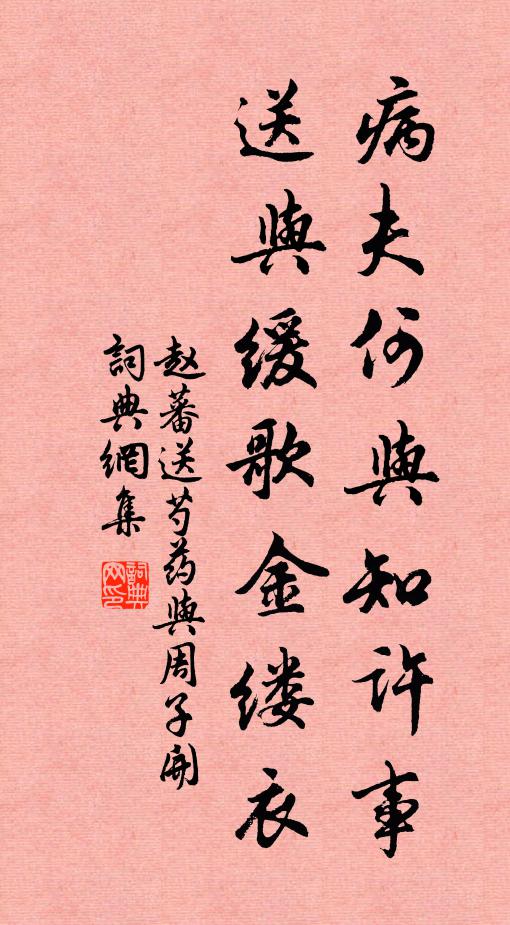 病夫何與知許事
送與缓歌金缕衣
赵蕃送芍药與周子開
詞典網集
詞典網印